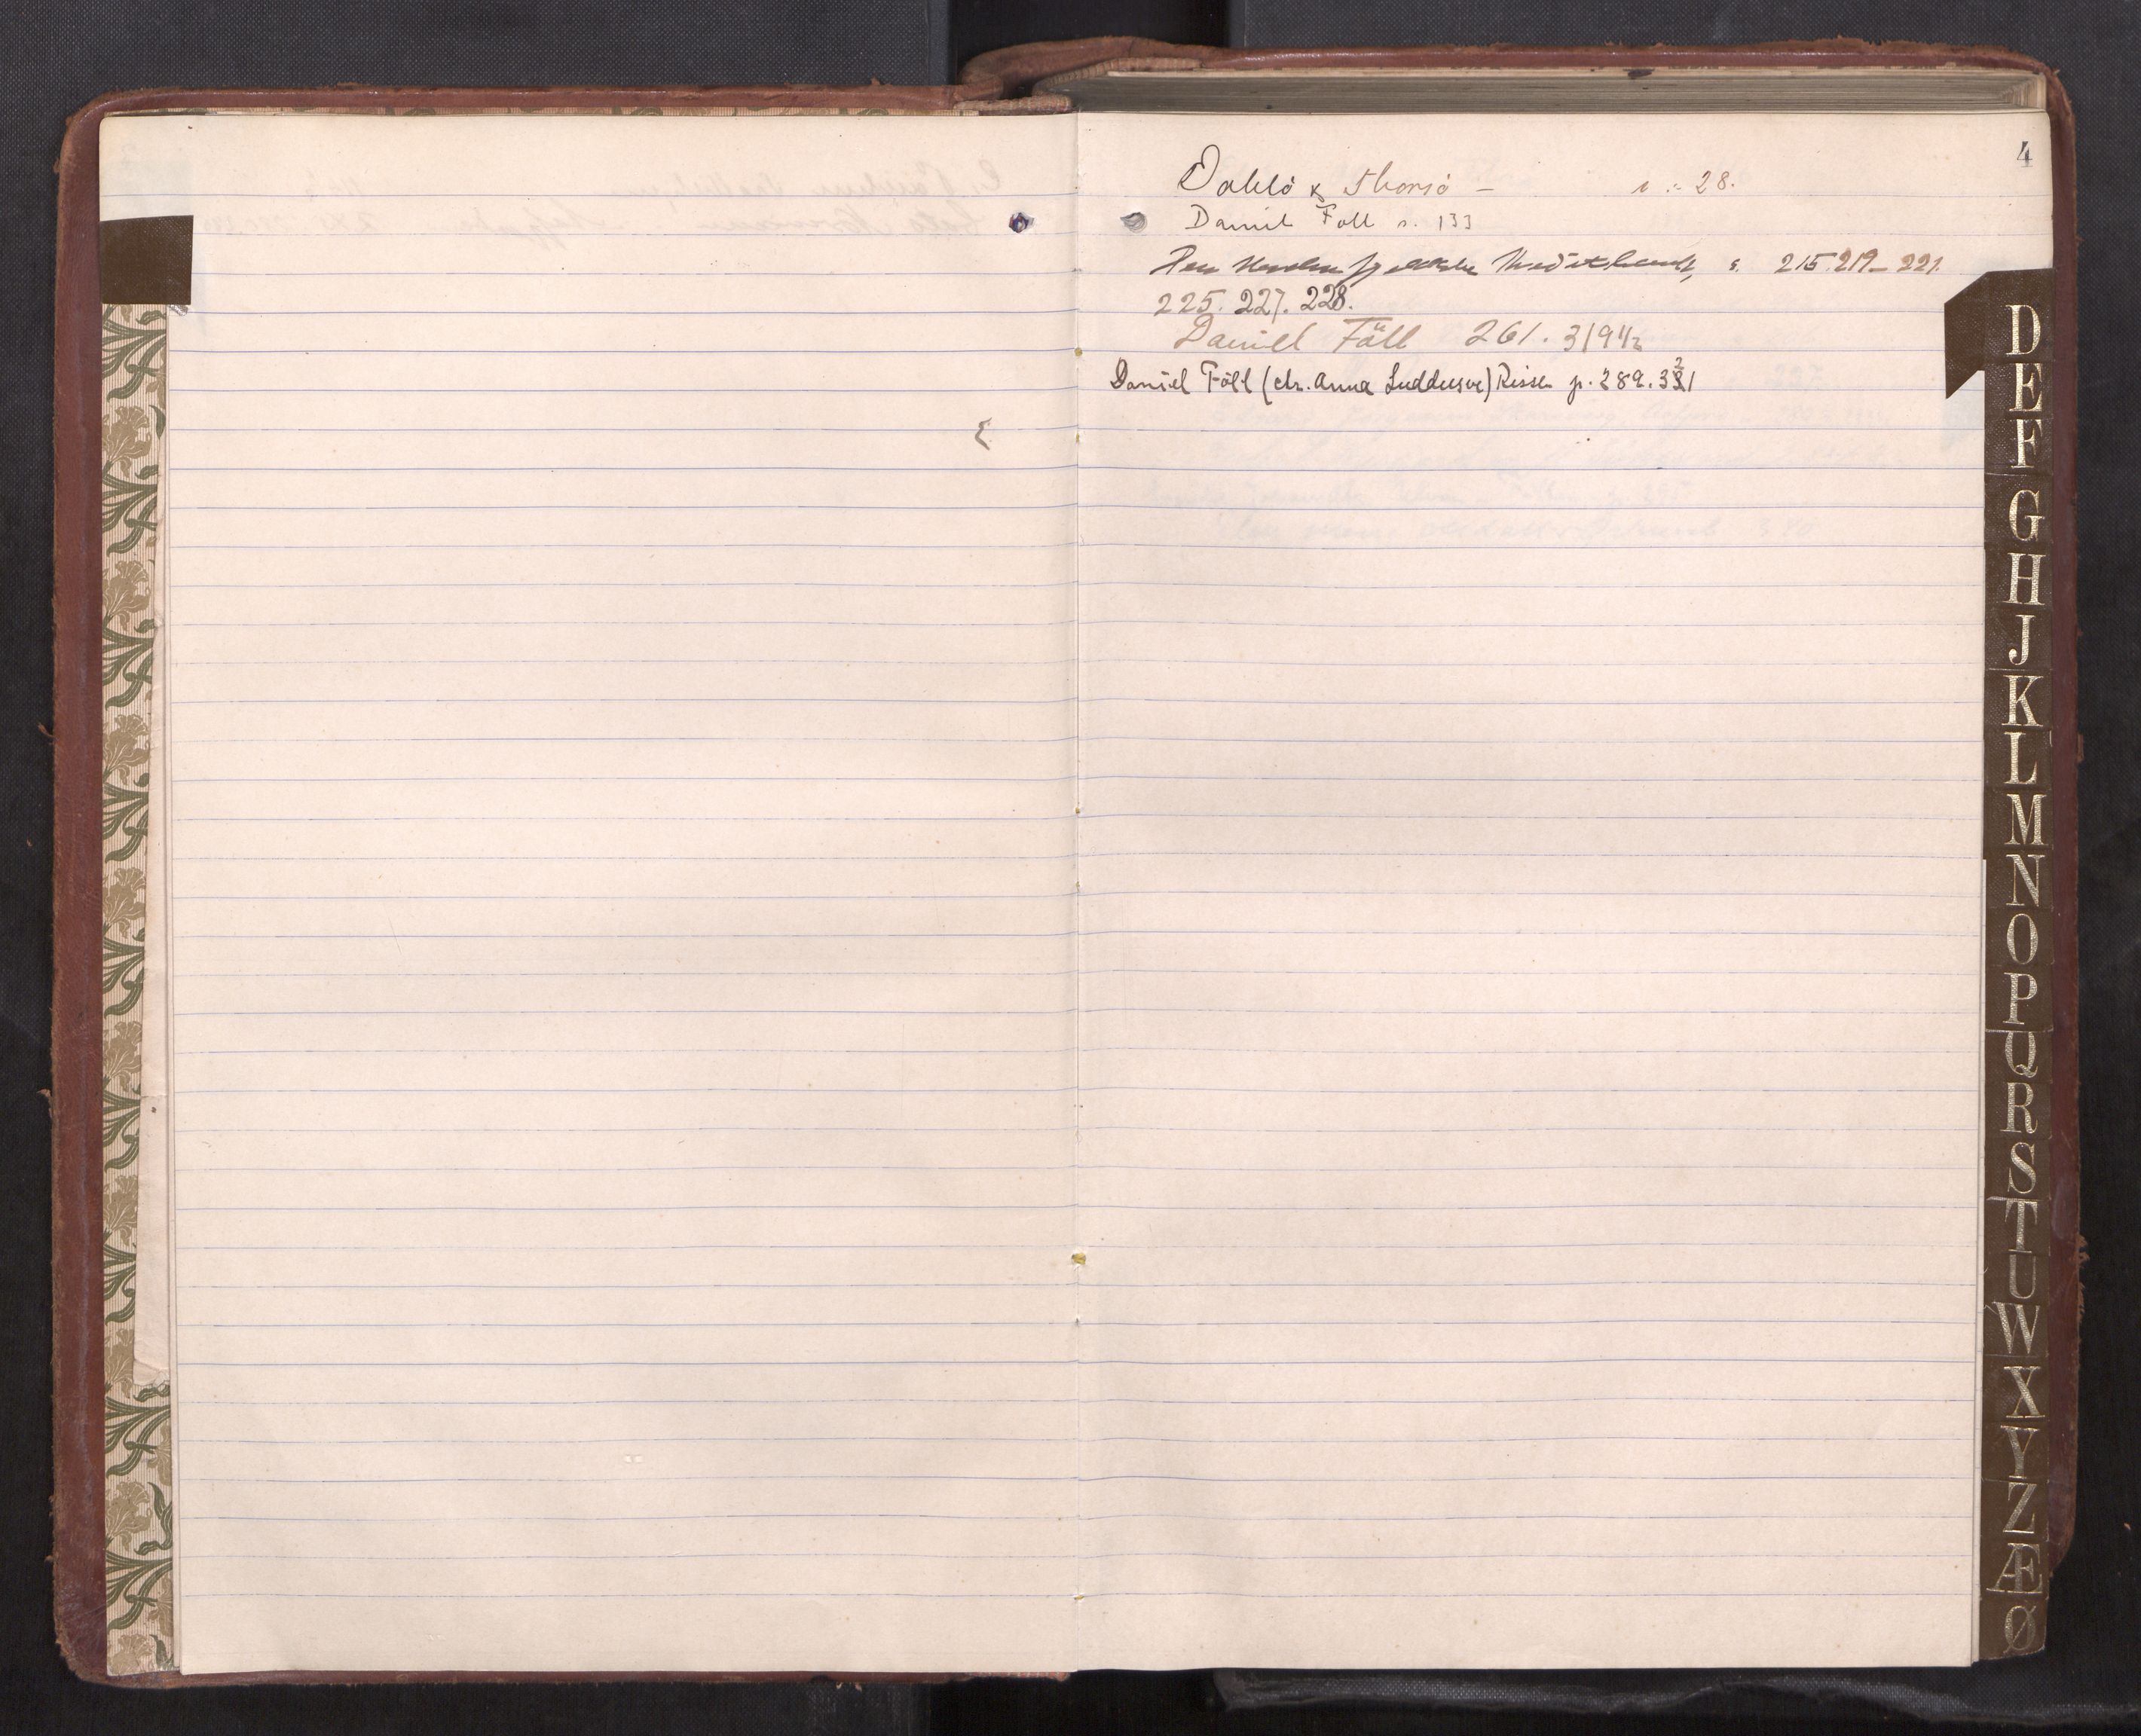 4
Dahlö & Thorsö – s. 28.
Daniel Föll s. 133
Den Norske s. 215. 219– 221.
225. 227. 228.
Daniel Föll 261. 319 1/2
Daniel Föll (chr. Anna p. 289. 321
D
E
F
G
H
J
K
L
M
N
O
P
Q
R
S
T
U
W
X
Y
Z
Æ
Ø